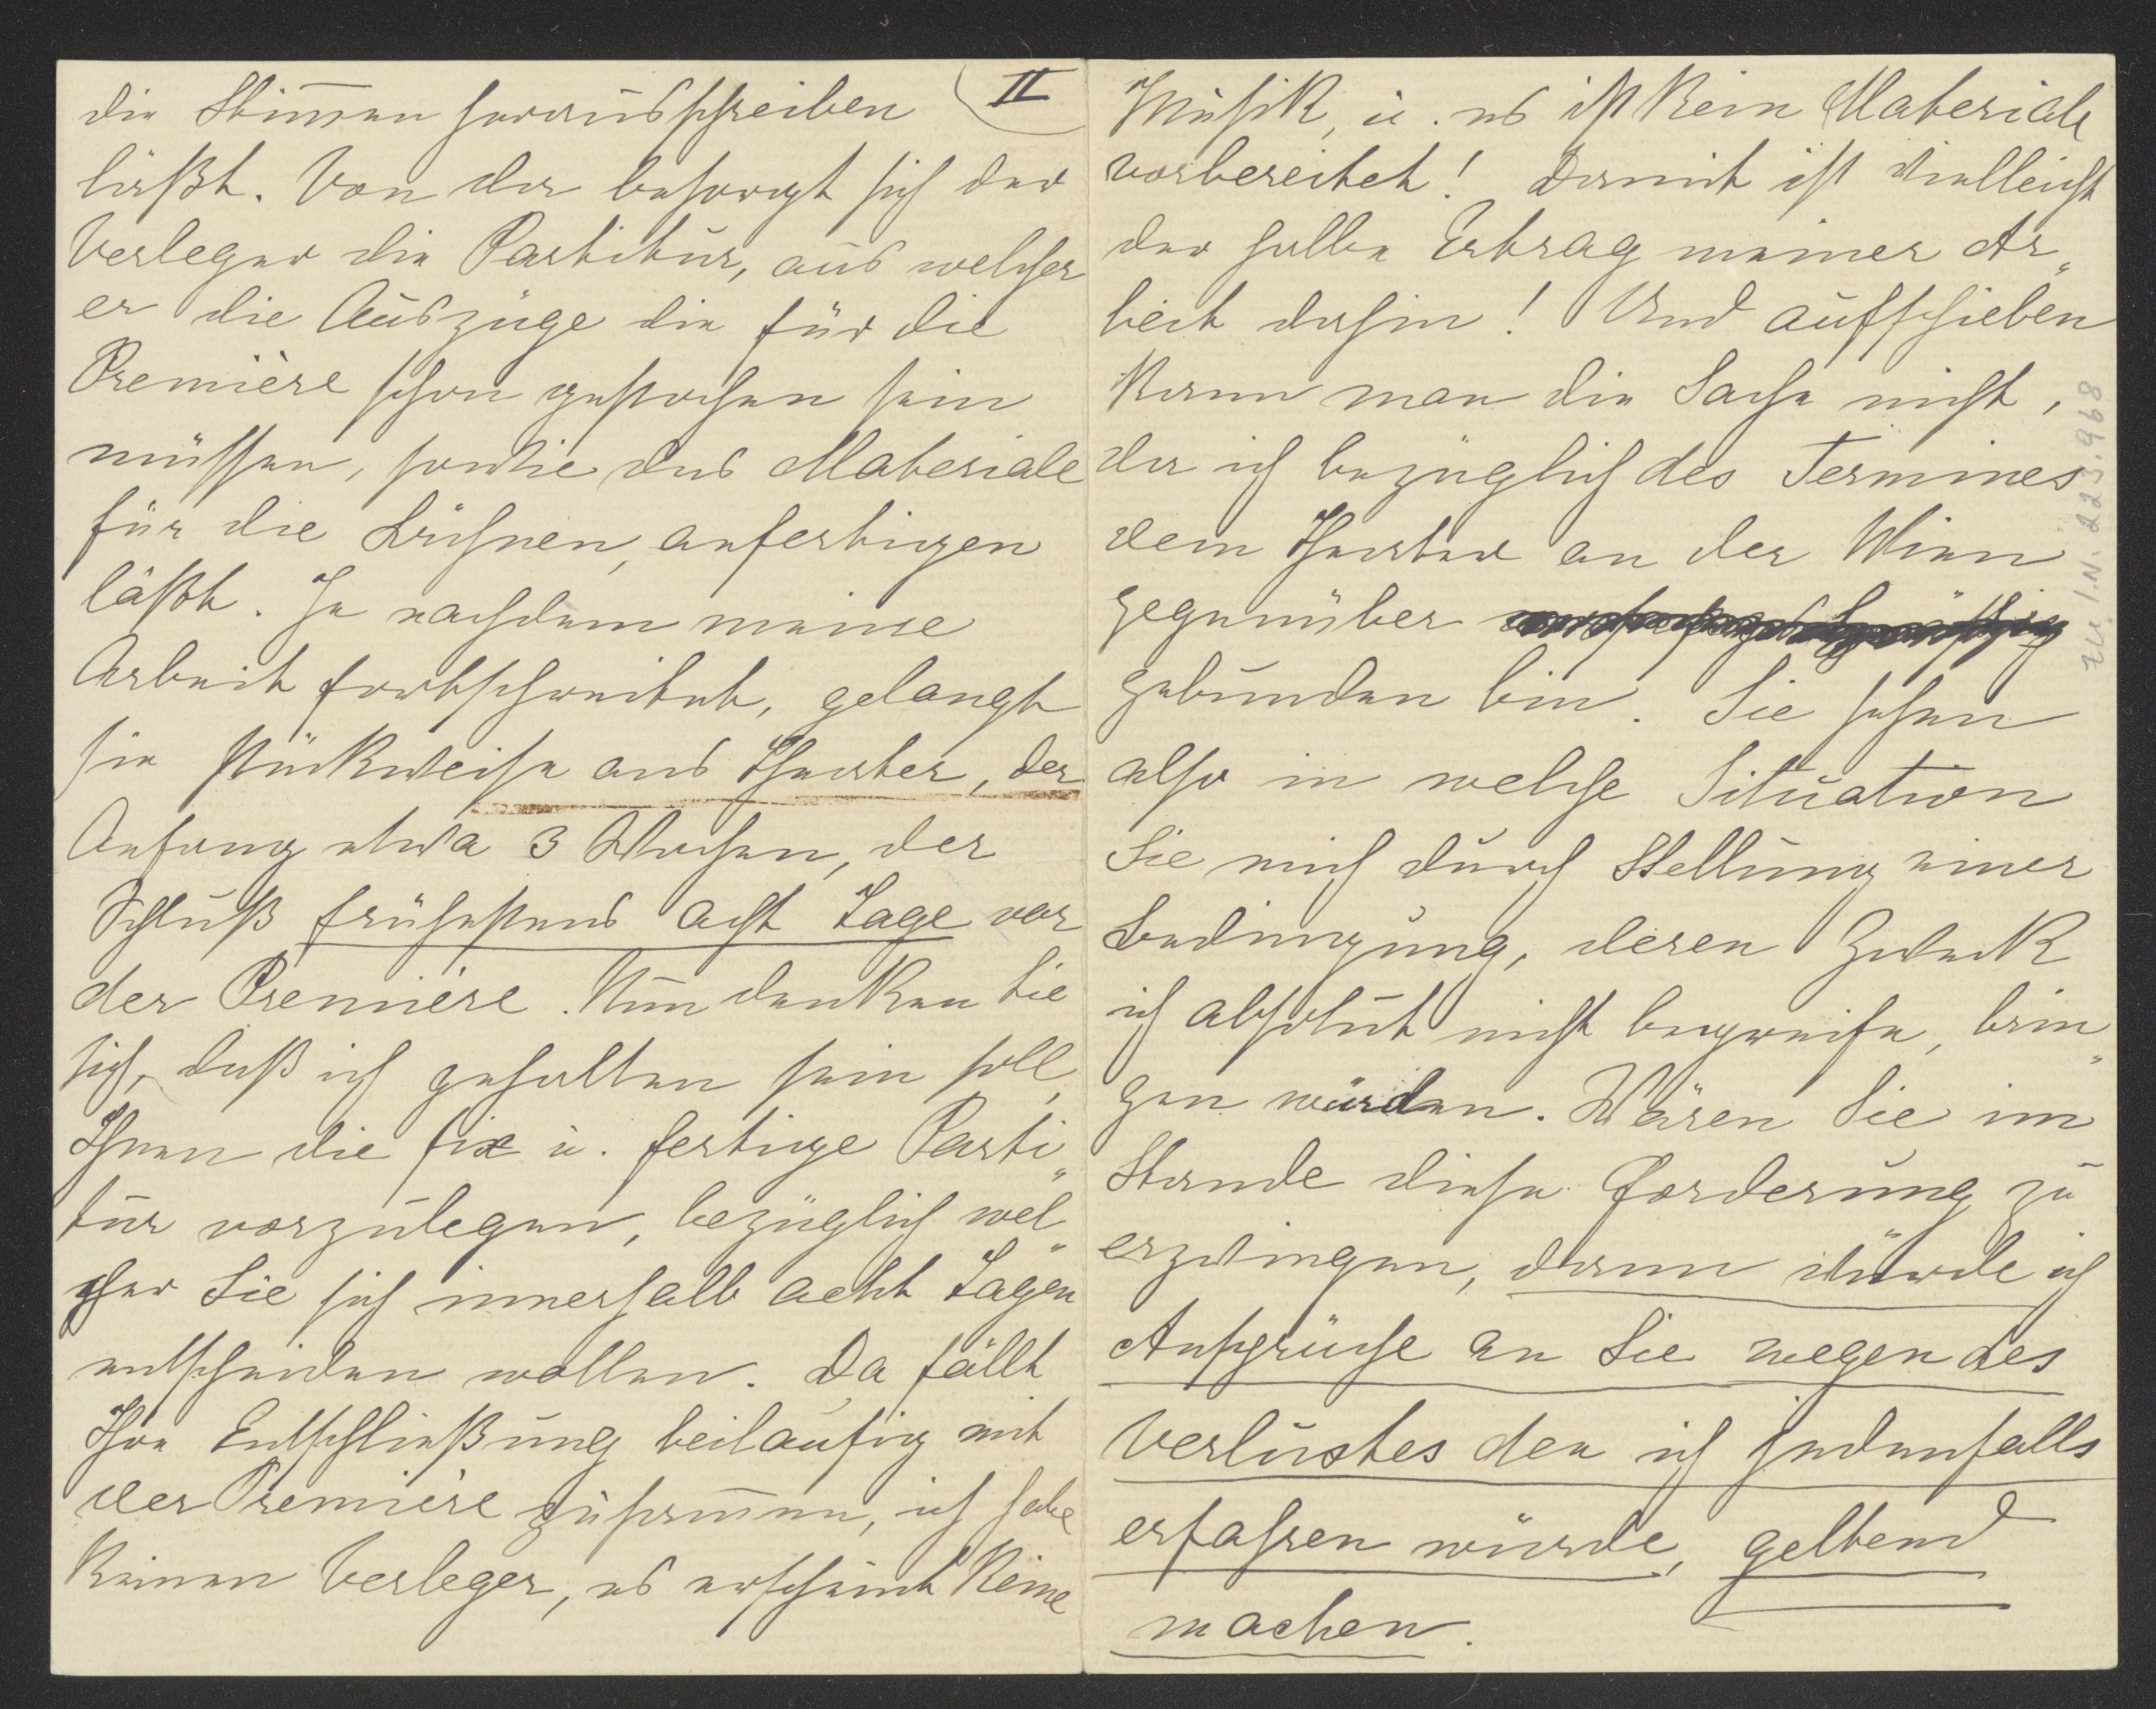 die Stim̄en herausschreiben
II
läßt. Von da besorgt sich der
Verleger die Partitur, aus welcher
er die Auszüge die für die
Première schon gestochen sein
müssen, sowie das Materiale
für die Bühnen, anfertigen
läßt. Je nachdem meine
Arbeit fortschreitet, gelangt
sie stückweise ans Theater, der
Anfang etwa 3 Wochen, der
Schluß frühestens acht Tage vor
der Première. Nun denken Sie
sich, daß ich gehalten sein soll,
Ihnen die fix u. fertige Parti„
tur vorzulegen, bezüglich wel„
cher Sie sich innerhalb acht Tagen
entscheiden wollen. Da fällt
Ihre Entschließung beiläufig mit
der Première zusam̄en, ich habe
keinen Verleger, es erscheint keine
Musik, u. es ist kein Materiale
vorbereitet! Damit ist vielleicht
der halbe Ertrag meiner Ar„
beit dahin! Und aufschieben
kann man die Sache nicht,
da ich bezüglich des Termines
dem Theater an der Wien
gegenüber
gebunden bin. Sie sehen
also in welche Situation
Sie mich durch Stellung einer
Bedingung, deren Zweck
ich absolut nicht begreife, brin„
gen würden. Wären Sie im
Stande diese Forderung zu
erzwingen, dann würde ich
Ansprüche an Sie wegen des
Verlustes den ich jedenfalls
erfahren würde, geltend
machen.
zu I.N. 223.968